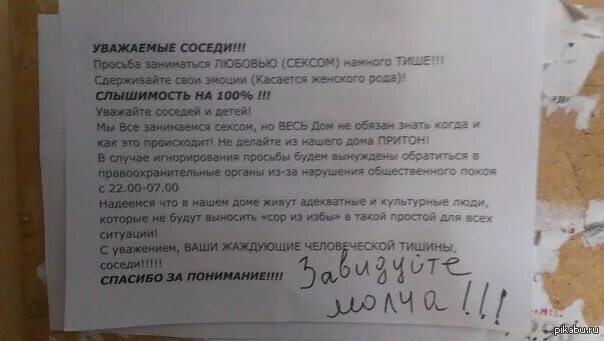 УВАЖАЕМЫЕ СОСЕДИ!!!
Просьба заниматься ЛЮБОВЬЮ (СЕКСОМ) намного ТИШЕ!!!
Сдерживайте свои эмоции (Касается женского рода)!
СЛЫШИМОСТЬ НА 100% !!!
Уважайте соседей и детей!
Мы Все занимаемся сексом, но ВЕСЬ Дом не обязан знать когда и
как это происходит! Не делайте из нашего дома ПРИТОН!
В случае игнорирования просьбы будем вынуждены обратиться в
правоохранительные органы из-за нарушения общественного покоя
с 22.00-07.00
Надеемся что в нашем доме живут адекватные и культурные люди,
которые не будут выносить «сор из избы» в такой простой для всех
ситуации!
С уважением, ВАШИ ЖАЖДУЮЩИЕ ЧЕЛОВЕЧЕСКОЙ ТИШИНЫ,
соседи!!!!!
СПАСИБО ЗА ПОНИМАНИЕ!!!!
Завидуйте
молча!!!
pikabu.ru